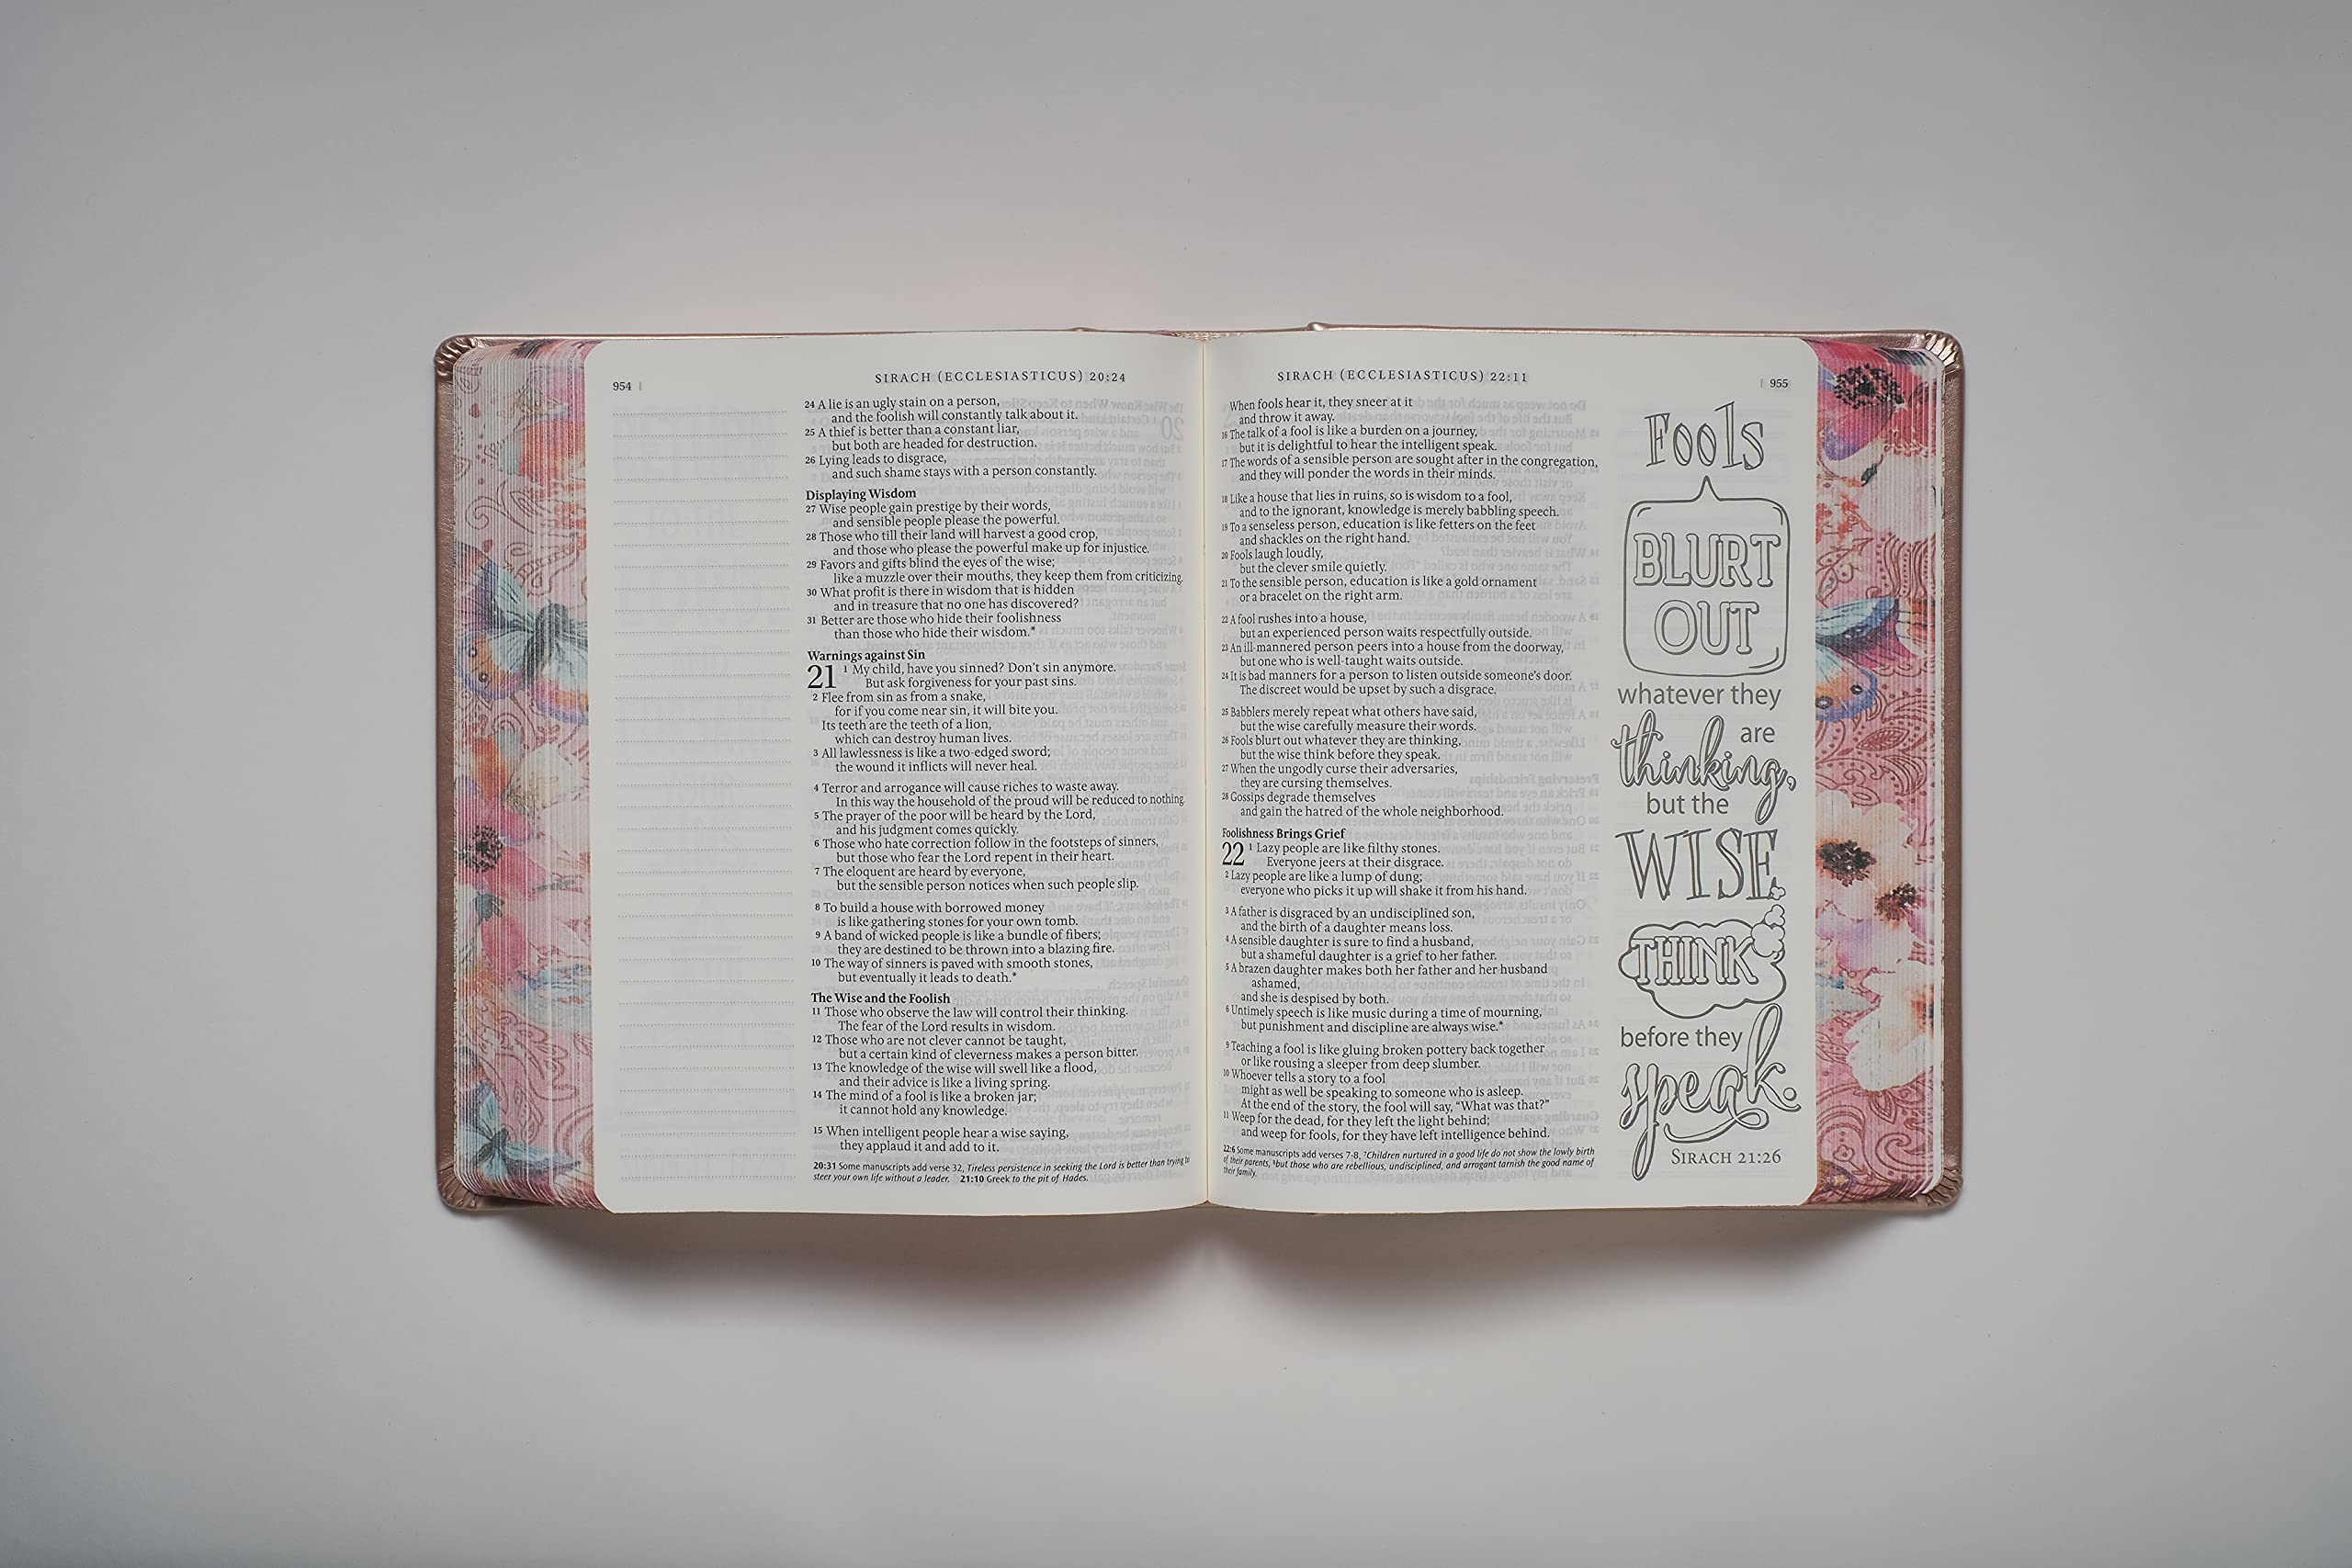 954
SIRACH (ECCLESIASTICUS) 20:24
24 A lie is an ugly stain on a person,
and the foolish will constantly talk about it.
25 A thief is better than a constant liar,
but both are headed for destruction.
26 Lying leads to disgrace,
and such shame stays with a person constantly.
Displaying Wisdom
27 Wise people gain prestige by their words,
and sensible people please the powerful.
28 Those who till their land will harvest a good crop,
and those who please the powerful make up for injustice.
29 Favors and gifts blind the eyes of the wise;
like a muzzle over their mouths, they keep them from criticizing.
30 What profit is there in wisdom that is hidden
and in treasure that no one has discovered?
31 Better are those who hide their foolishness
than those who hide their wisdom.*
Warnings against Sin
21 1 My child, have you sinned? Don't sin anymore.
But ask forgiveness for your past sins.
2 Flee from sin as from a snake,
for if you come near sin, it will bite you.
Its teeth are the teeth of a lion,
which can destroy human lives.
3 All lawlessness is like a two-edged sword;
the wound it inflicts will never heal.
4 Terror and arrogance will cause riches to waste away.
In this way the household of the proud will be reduced to nothing.
5 The prayer of the poor will be heard by the Lord,
and his judgment comes quickly.
6 Those who hate correction follow in the footsteps of sinners,
but those who fear the Lord repent in their heart.
7 The eloquent are heard by everyone,
but the sensible person notices when such people slip.
8 To build a house with borrowed money
is like gathering stones for your own tomb.
9 A band of wicked people is like a bundle of fibers;
they are destined to be thrown into a blazing fire.
10 The way of sinners is paved with smooth stones,
but eventually it leads to death.*
The Wise and the Foolish
11 Those who observe the law will control their thinking.
The fear of the Lord results in wisdom.
12 Those who are not clever cannot be taught,
but a certain kind of cleverness makes a person bitter.
13 The knowledge of the wise will swell like a flood,
and their advice is like a living spring.
14 The mind of a fool is like a broken jar;
it cannot hold any knowledge.
15 When intelligent people hear a wise saying,
they applaud it and add to it.
20:31 Some manuscripts add verse 32, Tireless persistence in seeking the Lord is better than trying to
steer your own life without a leader. 21:10 Greek to the pit of Hades.
SIRACH (ECCLESIASTICUS) 22:11
955
When fools hear it, they sneer at it
and throw it away.
16 The talk of a fool is like a burden on a journey,
but it is delightful to hear the intelligent speak.
17 The words of a sensible person are sought after in the congregation,
and they will ponder the words in their minds.
18 Like a house that lies in ruins, so is wisdom to a fool,
and to the ignorant, knowledge is merely babbling speech.
19 To a senseless person, education is like fetters on the feet
and shackles on the right hand.
20 Fools laugh loudly,
but the clever smile quietly.
21 To the sensible person, education is like a gold ornament
or a bracelet on the right arm.
22 A fool rushes into a house,
but an experienced person waits respectfully outside.
23 An ill-mannered person peers into a house from the doorway,
but one who is well-taught waits outside.
24 It is bad manners for a person to listen outside someone's door.
The discreet would be upset by such a disgrace.
25 Babblers merely repeat what others have said,
but the wise carefully measure their words.
26 Fools blurt out whatever they are thinking,
but the wise think before they speak.
27 When the ungodly curse their adversaries,
they are cursing themselves.
28 Gossips degrade themselves
and gain the hatred of the whole neighborhood.
Foolishness Brings Grief
22 1 Lazy people are like filthy stones.
Everyone jeers at their disgrace.
2 Lazy people are like a lump of dung;
everyone who picks it up will shake it from his hand.
3 A father is disgraced by an undisciplined son,
and the birth of a daughter means loss.
4 A sensible daughter is sure to find a husband,
but a shameful daughter is a grief to her father.
5 A brazen daughter makes both her father and her husband
ashamed,
and she is despised by both.
6 Untimely speech is like music during a time of mourning,
but punishment and discipline are always wise.*
9 Teaching a fool is like gluing broken pottery back together
or like rousing a sleeper from deep slumber.
10 Whoever tells a story to a fool
might as well be speaking to someone who is asleep.
At the end of the story, the fool will say, "What was that?"
11 Weep for the dead, for they left the light behind;
and weep for fools, for they have left intelligence behind.
22:6 Some manuscripts add verses 7-8, 7Children nurtured in a good life do not show the lowly birth
of their parents, 8but those who are rebellious, undisciplined, and arrogant tarnish the good name of
their family.
Fools
BLURT
OUT
whatever they
are
thinking,
but the
WISE
THINK
before they
speak.
SIRACH 21:26